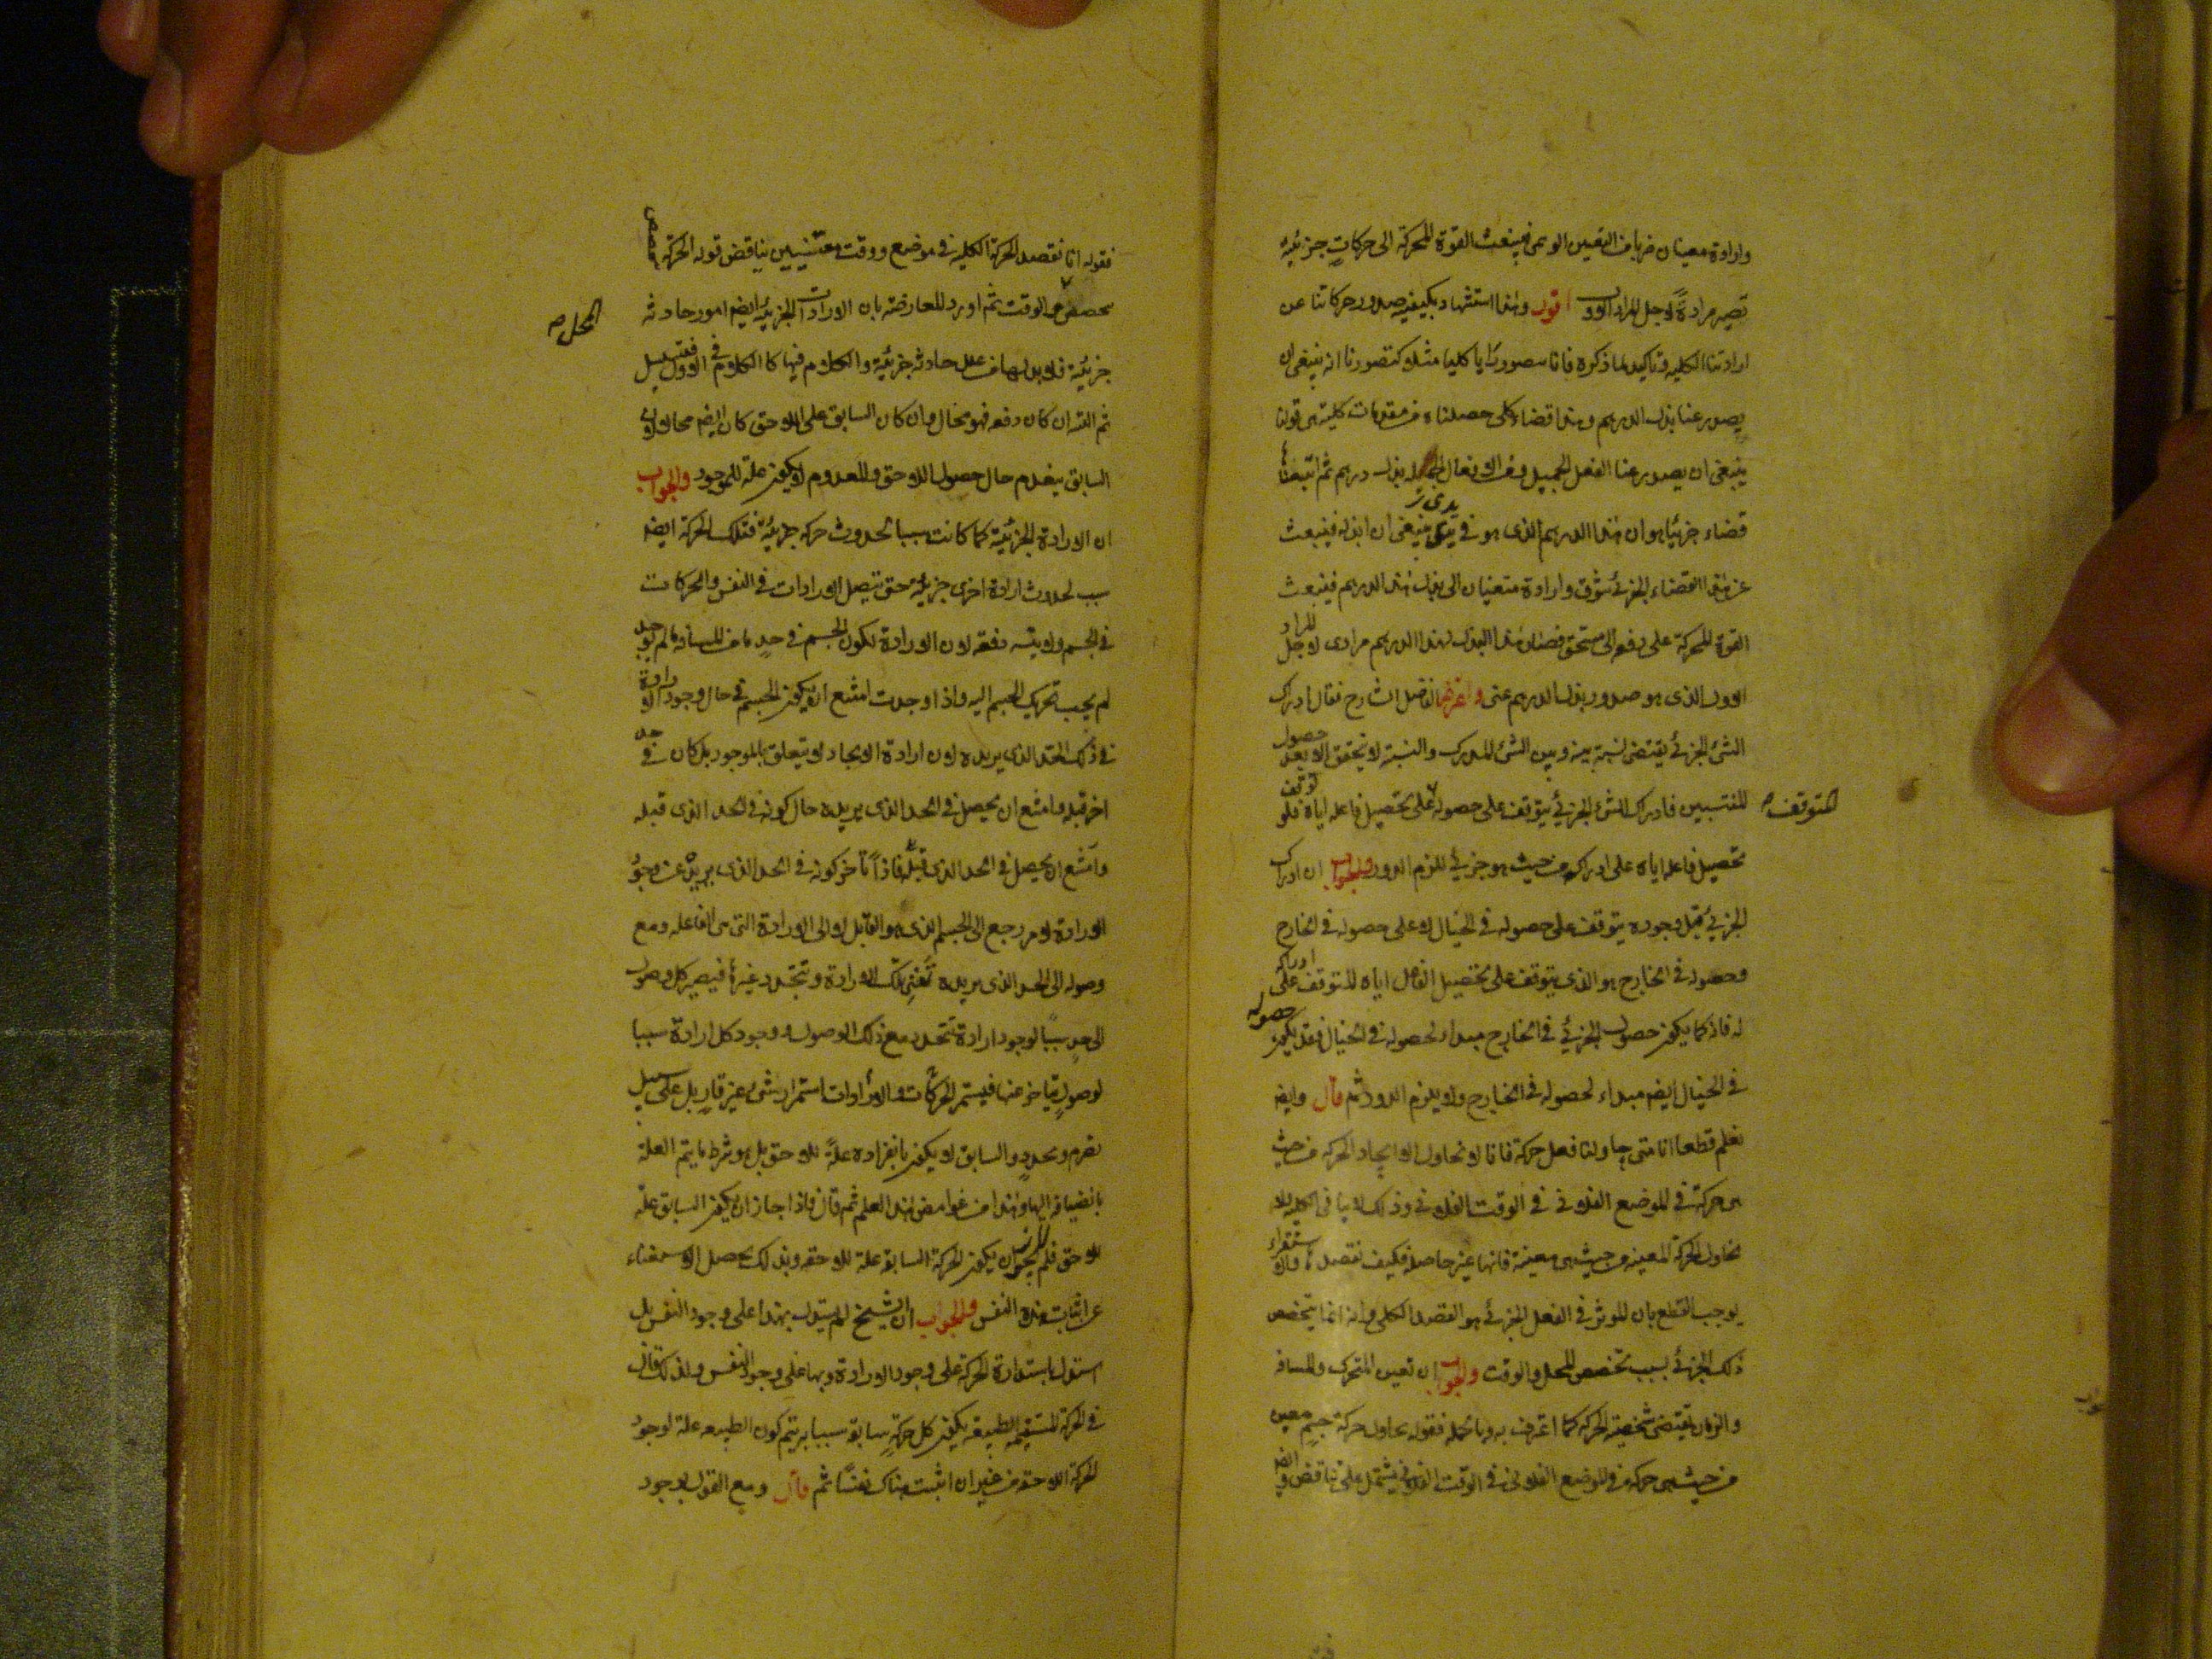 وارادة معينان ضربا من التعين الوهمى فينبعث القوة المحركة الى حركات جزئية
تصير مرادة لاجل المراد الاول اقول وهذا استشهاد بكيفية صدور حركاتنا عن
ارادتنا الكلية وتاكيد لما ذكره فانا نتصور رايا كليا مثلا كتصورنا انه ينبغى ان
يصدر عنا بذل الدرهم وهذا قضاء كلى حصلناه من مقدمات كلية هى قولنا
ينبغى ان يصدر عنا الفعل الجميل ومن الافعال الجميلة بذل درهم ثم اتبعنا
قضاء جزئيا هو ان هذا الدرهم الذى هو فى يدى ينبغى ان ابذله فينبعث
عن هذا القضاء الجزئى شوق وارادة متعينان الى بذل هذا الدرهم فينبعث
القوة المحركة على دفعه الى مستحق فصار هذا البذل لهذا الدرهم مرادى لاجل المراد
الاول الذى هو صدور بذل الدرهم عنى واعترض الفاضل الشارح فقال ادراك
الشئ الجزئى يقتضى نسبة بينه وبين الشئ المدرك والنسبة لا تتحقق الا بعد حصول
المنتسبين فادراك الشئ الجزئى يتوقف على حصوله المتوقف على تحصيل فاعله اياه فلو توقف
تحصيل فاعله اياه على ادراكه من حيث هو جزئى للزم الدور والجواب ان ادراك
الجزئى قبل وجوده يتوقف على حصوله فى الخيال لا على حصوله فى الخارج
وحصوله فى الخارج هو الذى يتوقف على تحصيل الفاعل اياه المتوقف على ادراكه
له فانه كما يكون حصول الجزئى فى الخارج مبداء لحصوله فى الخيال فقد يكون حصوله
فى الخيال ايضا مبداء لحصوله فى الخارج ولا يلزم الدور ثم قال وايضا
نعلم قطعا انا متى حاولنا فعل حركة فانا لا نحاول الا ايجاد الحركة من حيث
هى حركة فى الموضع الفلانى فى الوقت الفلانى وذلك لا ينافى الكلية لا
نحاول الحركة المعينة من حيث هى معينة فانها غير حاصلة فكيف نقصدها فالاستقراء
يوجب القطع بان الموثر فى الفعل الجزئى هو القصد الكلى وانه انما يتخصص
ذلك الجزئى بسبب تخصص المحل والوقت والجواب ان تعين المتحرك والمسافة
والزمان يقتضى شخصية الحركة كما اعترف به وبالجملة فقوله نحاول حركة جسم معين
من حيث هى حركة فى الموضع الفلانى فى الوقت الفلانى يشتمل على تناقض وايضا
فقوله انا نقصد الحركة الكلية فى موضع ووقت معينين يناقض قوله الحركة
تتخصص المحل والوقت ثم اورد المعارضة بان الارادات الجزئية ايضا امور حادثة
جزئية فلا بد لها من علل حادثة جزئية والكلام فيها كالكلام فى الاول فتسلسل
ثم انه ان كان دفعة فهو محال وان كان السابق على اللاحق كان ايضا محالا لان
السابق ينعدم حال حصول اللاحق والمعدوم لا يكون علة للموجود والجواب
ان الارادة الجزئية كما كانت سببا لحدوث حركة جزئية فتلك الحركة ايضا
سبب لحدوث ارادة اخرى جزئية حتى تتصل الارادات فى النفس والحركات
فى الجسم ولا يتسلسل دفعة لان الارادة لكون الجسم فى حد ما من المسافة ما لم يوجد
لم يجب تحريك الجسم اليه واذا وجدت امتنع ان يكون الجسم فى حال وجود الارادة
فى ذلك الحد الذى يريده لان ارادة الايجاد لا يتعلق بالموجود بل كان فى حد
اخر قبله وامتنع ان يحصل فى الحد الذى يريده حال كونه فى الحد الذى قبله
وامتنع ان يحصل فى الحد الذى قبله فاذا تاخر كونه فى الحد الذى يريده عن وجود
الارادة لامر رجع الى الجسم الذى هو القابل لا الى الارادة التى هى الفاعلة ومع
وصوله الى الحد الذى يريده تفنى تلك الارادة وتتجدد غيرها فيصير كل وصول
الى حد سببا لوجود ارادة تتجدد مع ذلك الوصول ووجود كل ارادة سببا
لوصول يتاخر عنها فيستمر الحركات والارادات استمرار شئ غير قار بل على سبيل
تصرم وتجدد والسابق لا يكون بانفراده علة للاحق بل هو شرط ما يتم العلة
بانضيافه اليها وهذا من غوامض هذا العلم ثم قال واذا جاز ان يكون السابق علة
للاحق فلم لا يجوز ان يكون الحركة السابقة علة للاحقة وبذلك يحصل الاستغناء
عن اثبات هذه النفس والجواب ان الشيخ لم يستدل بهذا على وجود النفس بل
استدل باستدارة الحركة على وجود الارادة وبها على وجود النفس ولذلك قال
فى الحركة المستقيمة الطبيعية يكون كل حركة سابقة سببا به يتم كون الطبيعة علة لوجود
الحركة اللاحقة من غير ان اثبت هناك نفسا ثم قال ومع القول بوجود